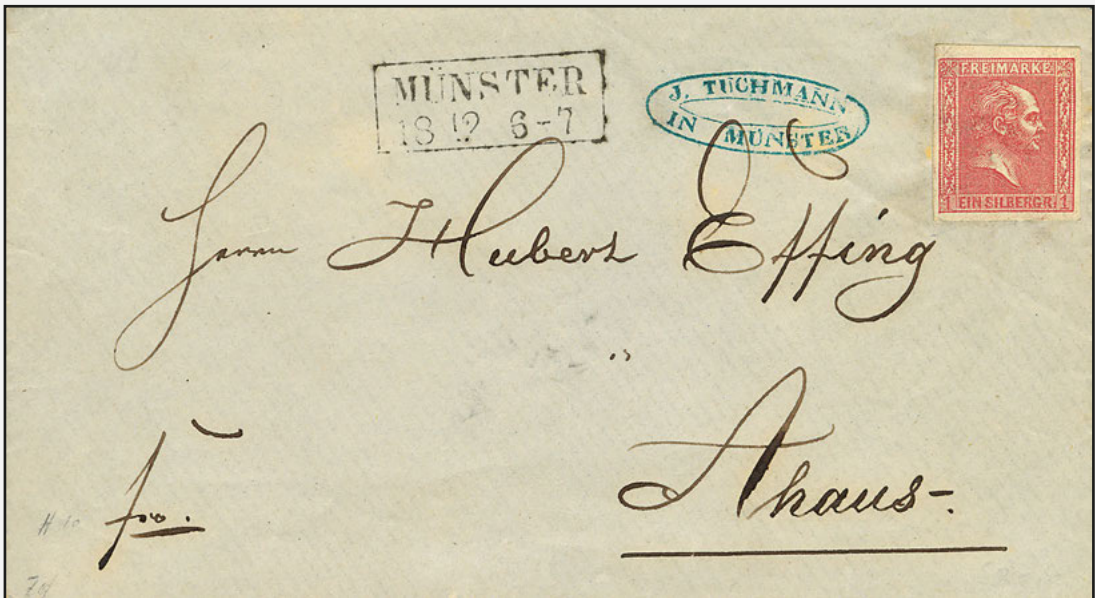 MÜNSTER
18 12 6-7
J. TUCHMANN
IN MÜNSTER
FREIMARKE
1 EIN SILBERGR. 1
Herrn Hubert Effing
Ahaus-.
fro.